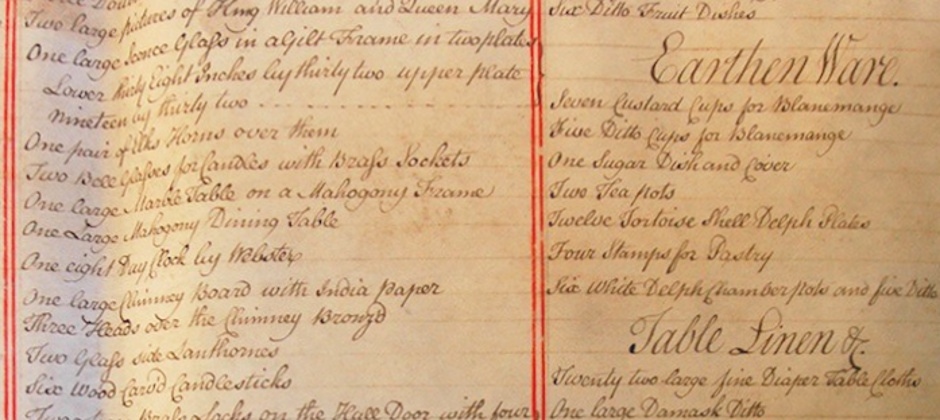 Two large pictures of King William and Queen Mary
One large Sconce Glass in a Gilt Frame in two plates
Lower thirty Eight Inches by thirty two upper plate
nineteen by thirty two
One pair of Elks Horns over them
Two Bell Glasses for Candles with Brass Sockets
One large Marble Table on a Mahogony Frame
One Large Mahogony Dining Table
One eight Day Clock by Webster
One large Chimney Board with India paper
Three Heads over the Chimney Bronzd
Two Glass side Lanthornes
Six Wood Carvd Candlesticks
Brass Locks on the Hall Door with four
Six Ditto Fruit Dishes
Earthen Ware.
Seven Custard Cups for Blanemange
Five Ditto Cups for Blanemange
One Sugar Dish and Cover
Two Tea pots
Twelve Tortoise Shell Delph Plates
Four Stamps for Pastry
Six White Delph Chamber pots and five Ditto
Table Linen &c.
Twenty two large fine Diaper Table Cloths
One large Damask Ditto